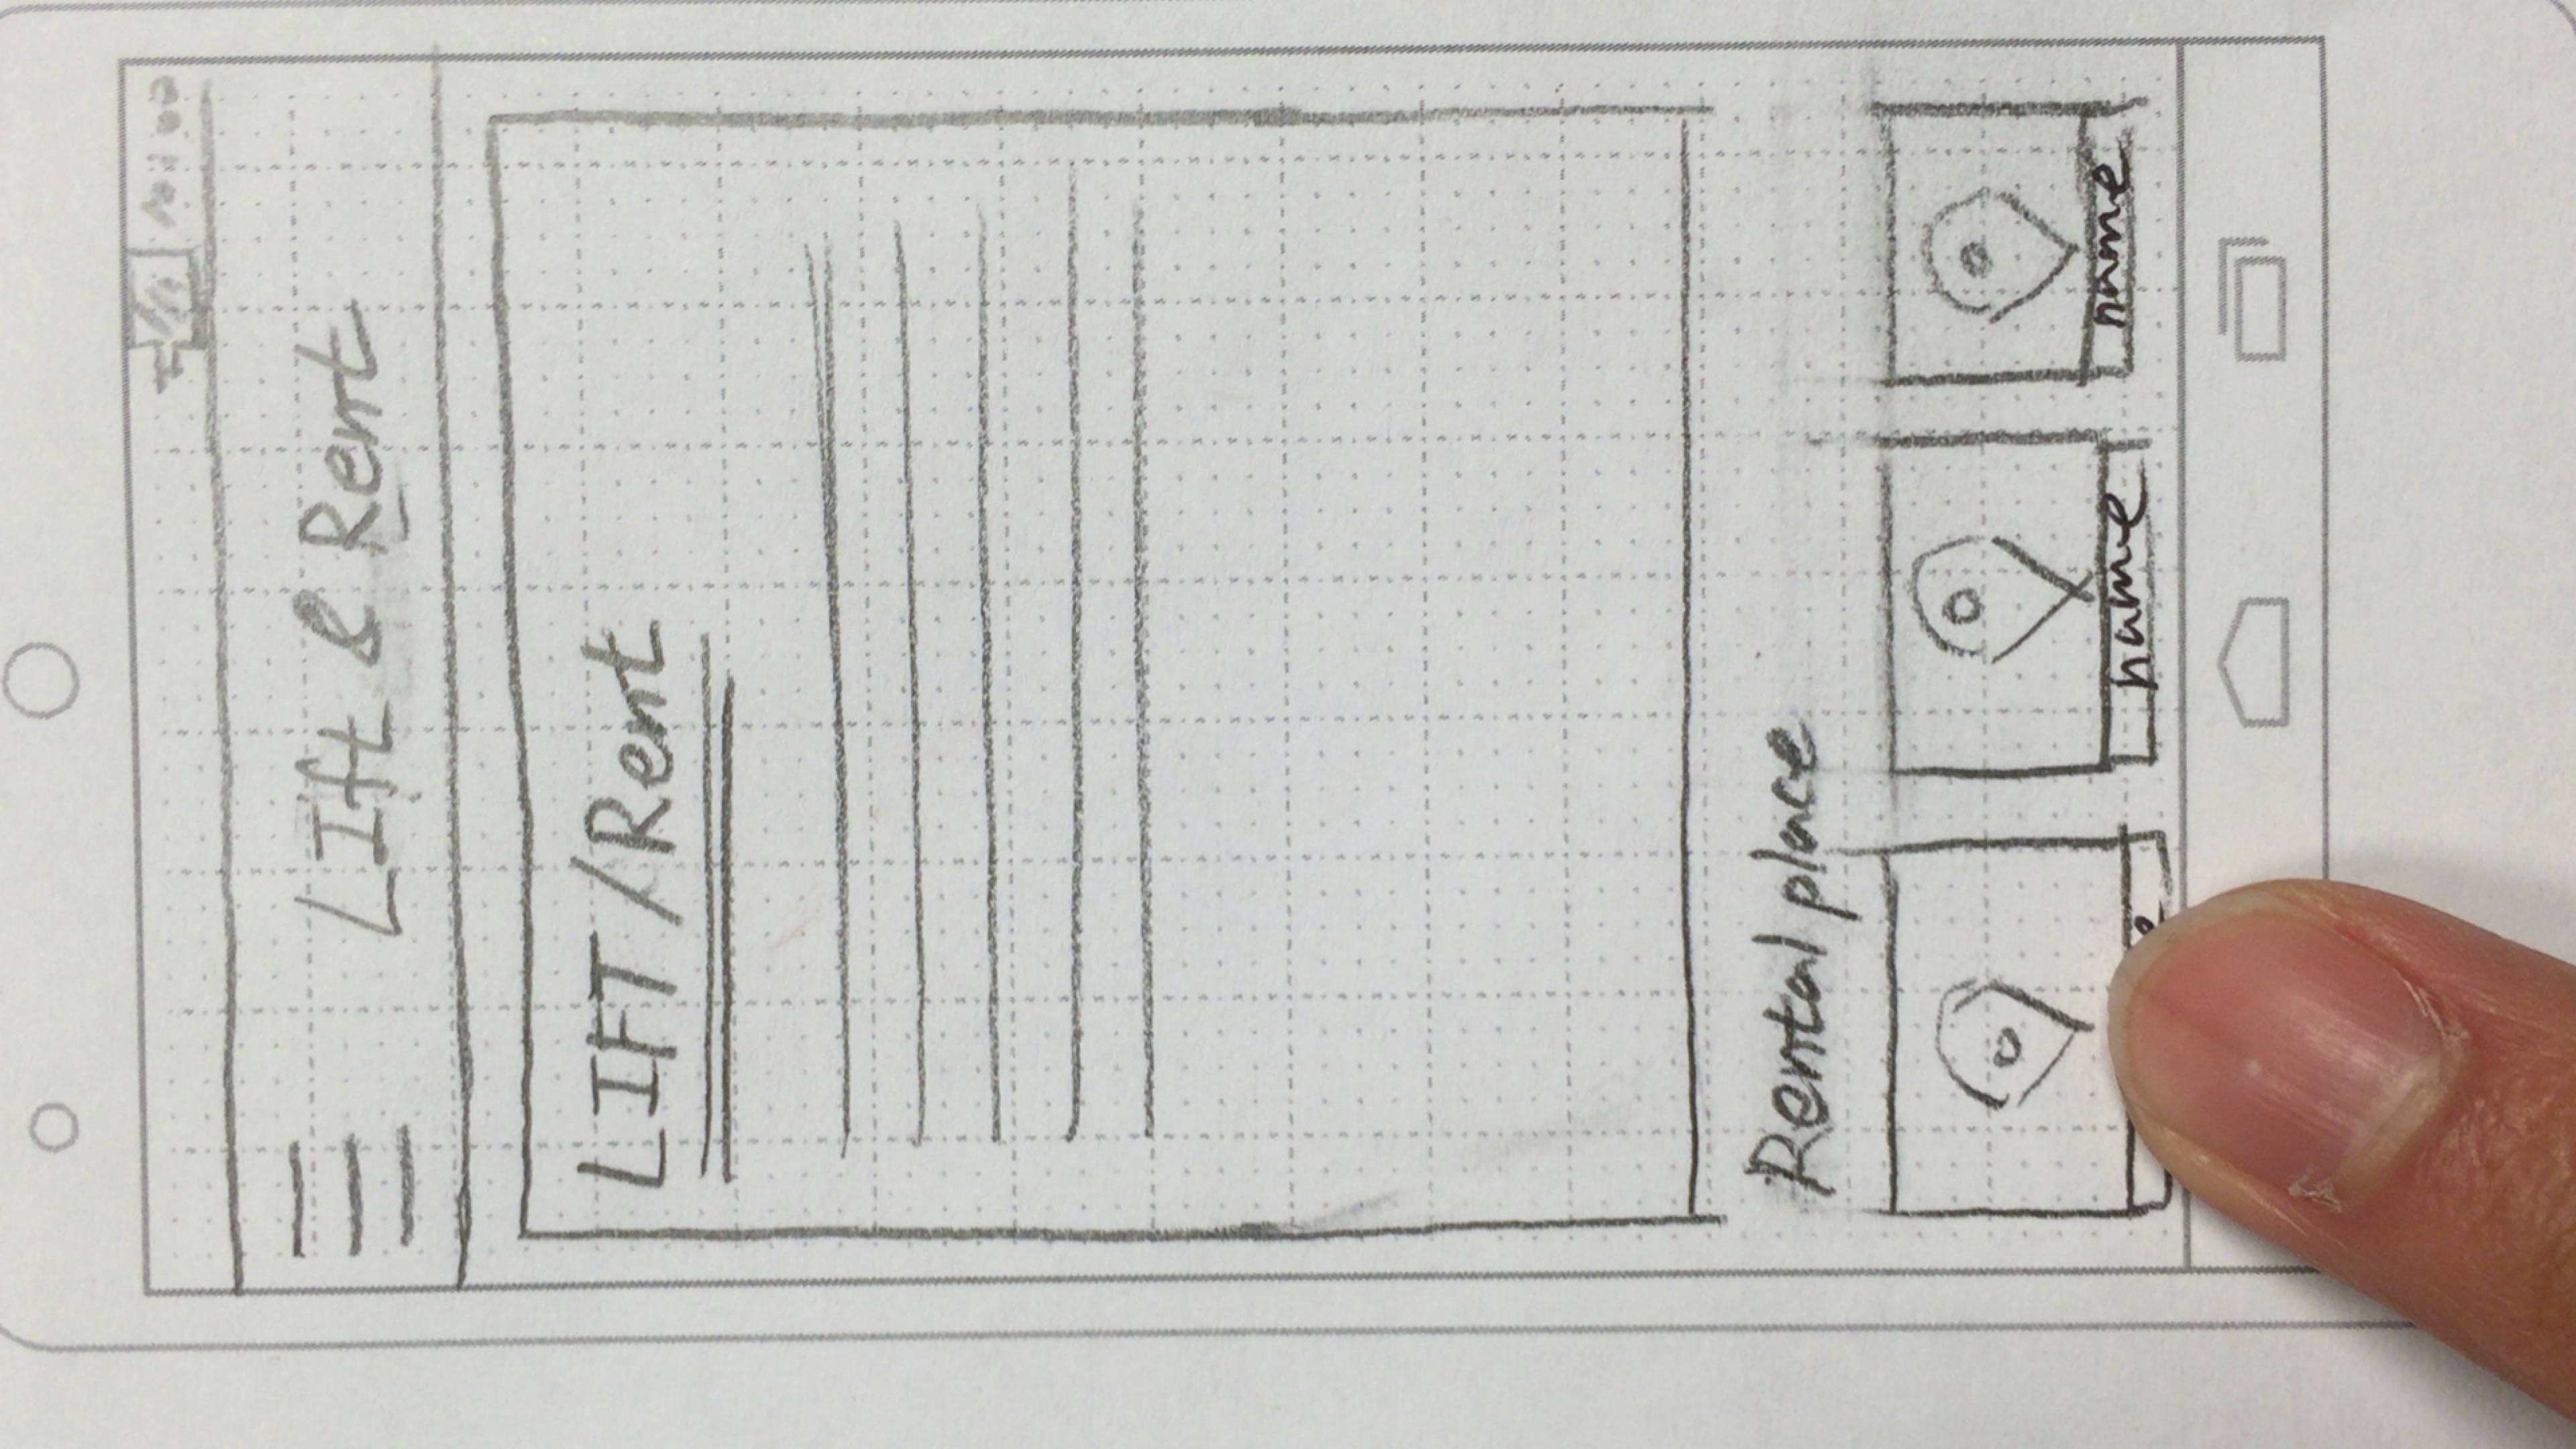 10:00
LIft & Rent
LIFT / Rent
Rental place
name name